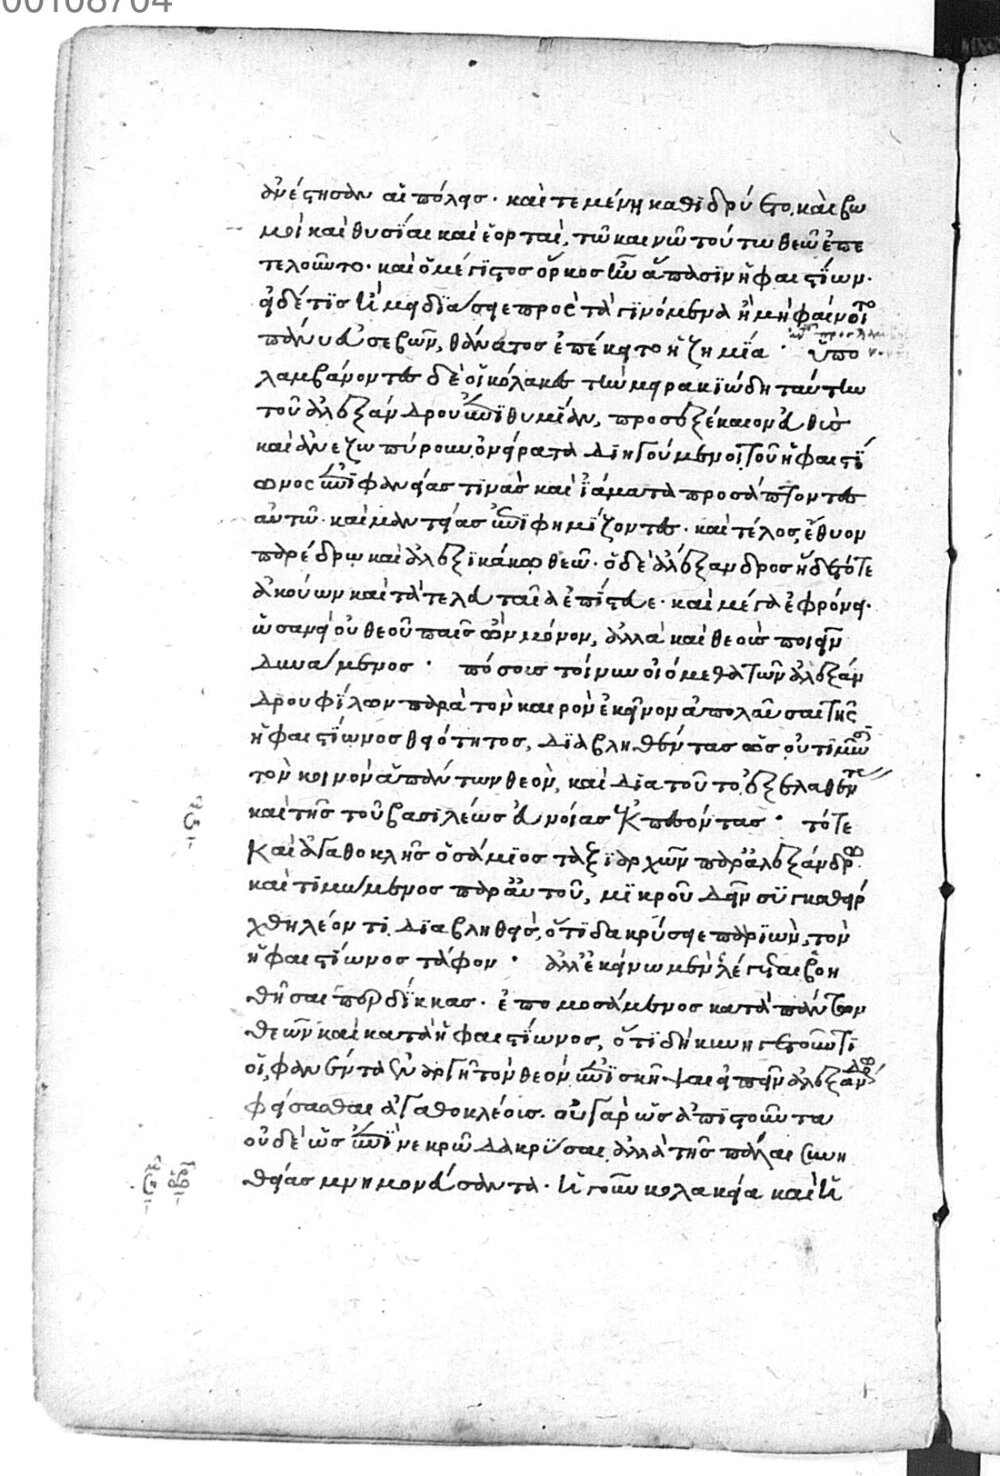 00108704
ἀνέστησαν αἱ πόλεις· καὶ τεμένη καθιδρύετο, καὶ βω
μοὶ καὶ θυσίαι καὶ ἑορταὶ, τῶ καινῶ τούτω θεῶ ἐπε
τελοῦντο· καὶ ὁ μέγιστος ὅρκος ἦν ἅπασιν ἡφαιστίων·
εἰ δέ τις ἢ μειδιάσειε πρὸς τὰ γινόμενα ἢ μὴ φαίνοιτο
πάνυ εὐσεβῶν, θάνατος ἐπέκειτο ἡ ζημία· ὑπο
λαμβάνοντες δὲ οἱ κόλακες τὴν μειρακιώδη ταύτην
τοῦ ἀλεξάνδρου ἐπιθυμίαν, προσεξέκαιον εὐθὺς
καὶ ἀνεζωπύρουν ὀνείρατα διηγούμενοι τοῦ ἡφαιστί
ωνος ἐπιφανείας τινὰς καὶ ἰάματα προσάπτοντες
αὐτῶ· καὶ μαντείας ἐπιφημίζοντες· καὶ τέλος, ἔθυον
παρέδρω καὶ ἀλεξικάκω θεῶ· ὁ δὲ ἀλέξανδρος ἥδετό τε
ἀκούων καὶ τὰ τελευταῖα ἐπίστευε· καὶ μέγα ἐφρόνει·
ὡσανεὶ οὐ θεοῦ παῖς ὢν μόνον, ἀλλὰ καὶ θεοὺς ποιεῖν
δυνάμενος· πόσους τοίνυν οἰόμεθα τῶν ἀλεξάν
δρου φίλων παρὰ τὸν καιρὸν ἐκεῖνον ἀπολαῦσαι τῆς
ἡφαιστίωνος θειότητος, διαβληθέντας ὡς οὐ τιμῶσι
τὸν κοινὸν ἁπάντων θεὸν, καὶ διὰ τοῦτο ἐξελαθέντας
καὶ τῆς τοῦ βασιλέως εὐνοίας ἐκπεσόντας· τότε
καὶ ἀγαθοκλῆς ὁ σάμιος ταξιαρχῶν παρ' ἀλεξάνδρω
καὶ τιμώμενος παρ' αὐτοῦ, μικροῦ δεῖν συγκαθείρ
χθη λέοντι διαβληθεὶς, ὅτι δακρύσειε παριὼν, τὸν
ἡφαιστίωνος τάφον· ἀλλ' ἐκείνω μὲν λέγεται βοη
θῆσαι περδίκκας· ἐπομοσάμενος κατὰ πάντων
θεῶν καὶ κατὰ ἡφαιστίωνος, ὅτι δὴ κυνηγετοῦντί
οἱ, φανέντα ἐναργῆ τὸν θεὸν ἐπισκῆψαι εἰπεῖν ἀλεξάνδρω
φείσασθαι ἀγαθοκλέους· οὐ γὰρ ὡς ἀπιστοῦντα
οὐδὲ ὡς ἐπὶ νεκρῶ δακρύσαι ἀλλὰ τῆς πάλαι συνη
θείας μνημονεύσαντα· ἡ γοῦν κολακεία καὶ ἡ